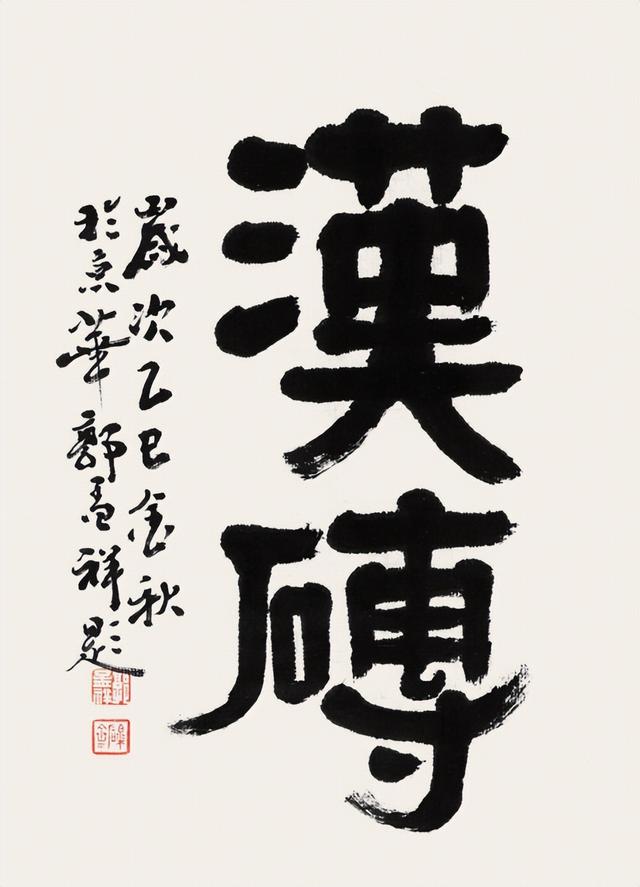 漢磚
歲次乙巳金秋
於京華郭孟祥題